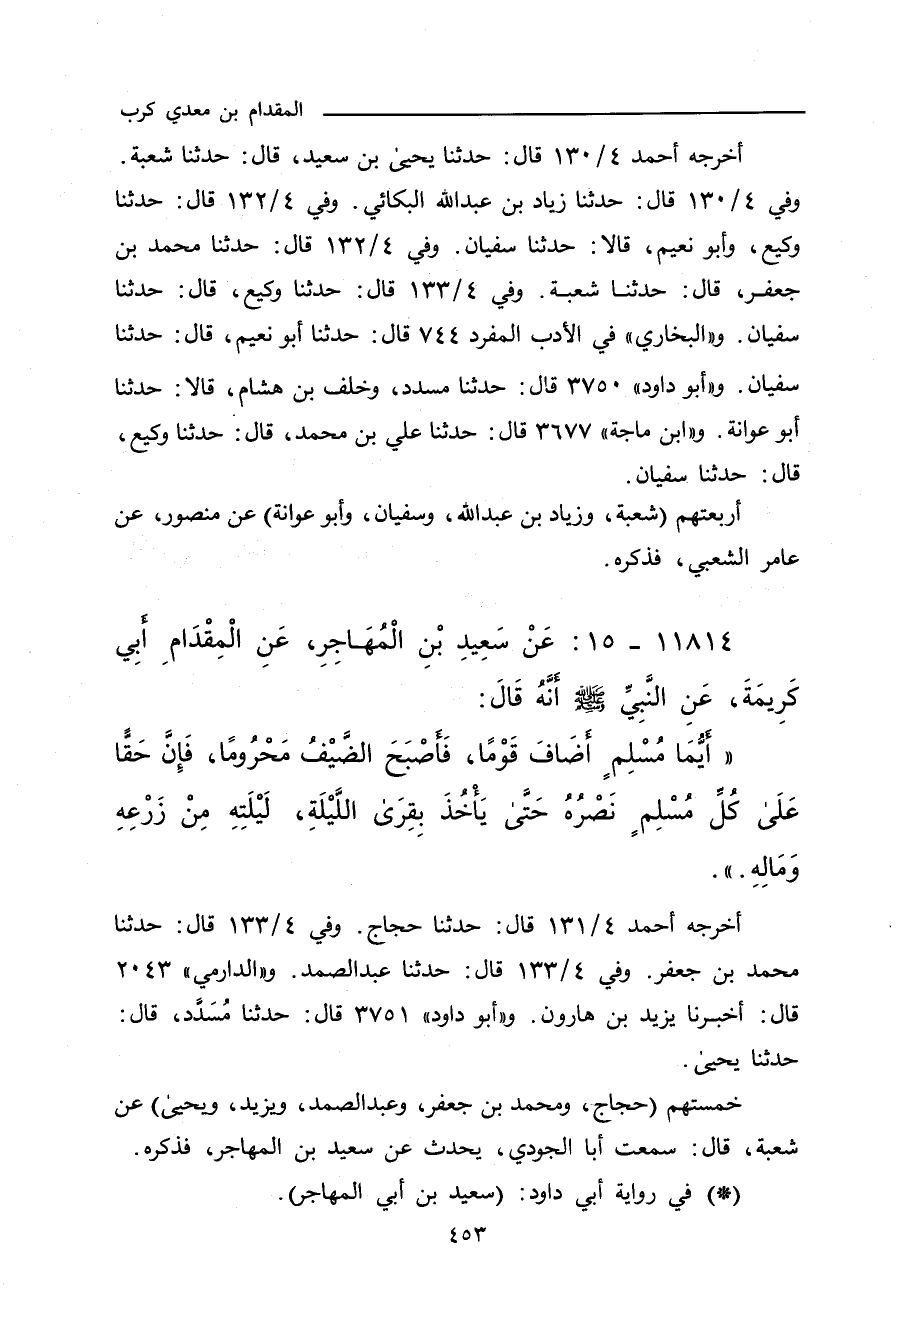 المقدام بن معدي كرب
أخرجه أحمد ٤/١٣٠ قال: حدثنا يحيىٰ بن سعيد، قال: حدثنا شعبة.
وفي ٤/١٣٠ قال: حدثنا زياد بن عبدالله البكائي. وفي ٤/١٣٢ قال: حدثنا
وكيع، وأبو نعيم، قالا: حدثنا سفيان. وفي ٤/١٣٢ قال: حدثنا محمد بن
جعفر، قال: حدثنا شعبة. وفي ٤/١٣٣ قال: حدثنا وكيع، قال: حدثنا
سفيان. و«البخاري» في الأدب المفرد ٧٤٤ قال: حدثنا أبو نعيم، قال: حدثنا
سفيان. و«أبو داود» ٣٧٥٠ قال: حدثنا مسدد، وخلف بن هشام، قالا: حدثنا
أبو عوانة. و«ابن ماجة» ٣٦٧٧ قال: حدثنا علي بن محمد، قال: حدثنا وكيع،
قال: حدثنا سفيان.
أربعتهم (شعبة، وزياد بن عبدالله، وسفيان، وأبو عوانة) عن منصور، عن
عامر الشعبي، فذكره.
١١٨١٤ - ١٥: عَنْ سَعِيدِ بْنِ الْمُهَاجِرِ، عَنِ الْمِقْدَامِ أَبِي
كَرِيمَةَ، عَنِ النَّبِيِّ ﷺ أَنَّهُ قَالَ:
« أَيُّمَا مُسْلِمٍ أَضَافَ قَوْمًا، فَأَصْبَحَ الضَّيْفُ مَحْرُومًا، فَإِنَّ حَقًّا
عَلَىٰ كُلِّ مُسْلِمٍ نَصْرُهُ حَتَّىٰ يَأْخُذَ بِقِرَىٰ اللَّيْلَةِ، لَيْلَتِهِ مِنْ زَرْعِهِ
وَمَالِهِ.».
أخرجه أحمد ٤/١٣١ قال: حدثنا حجاج. وفي ٤/١٣٣ قال: حدثنا
محمد بن جعفر. وفي ٤/١٣٣ قال: حدثنا عبدالصمد. و«الدارمي» ٢٠٤٣
قال: أخبرنا يزيد بن هارون. و«أبو داود» ٣٧٥١ قال: حدثنا مُسَدَّد، قال:
حدثنا يحيىٰ.
خمستهم (حجاج، ومحمد بن جعفر، وعبدالصمد، ويزيد، ويحيىٰ) عن
شعبة، قال: سمعت أبا الجودي، يحدث عن سعيد بن المهاجر، فذكره.
(*) في رواية أبي داود: (سعيد بن أبي المهاجر).
٤٥٣